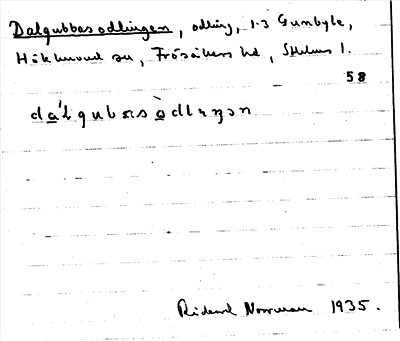 Dalgubbasodlingen, odling, 1.3 Gunbyle,
Häkhuvud sn, Frösåkers hd, Sthlms l.
58
da'lgubasòdleŋən
Rickard Norrman 1935.